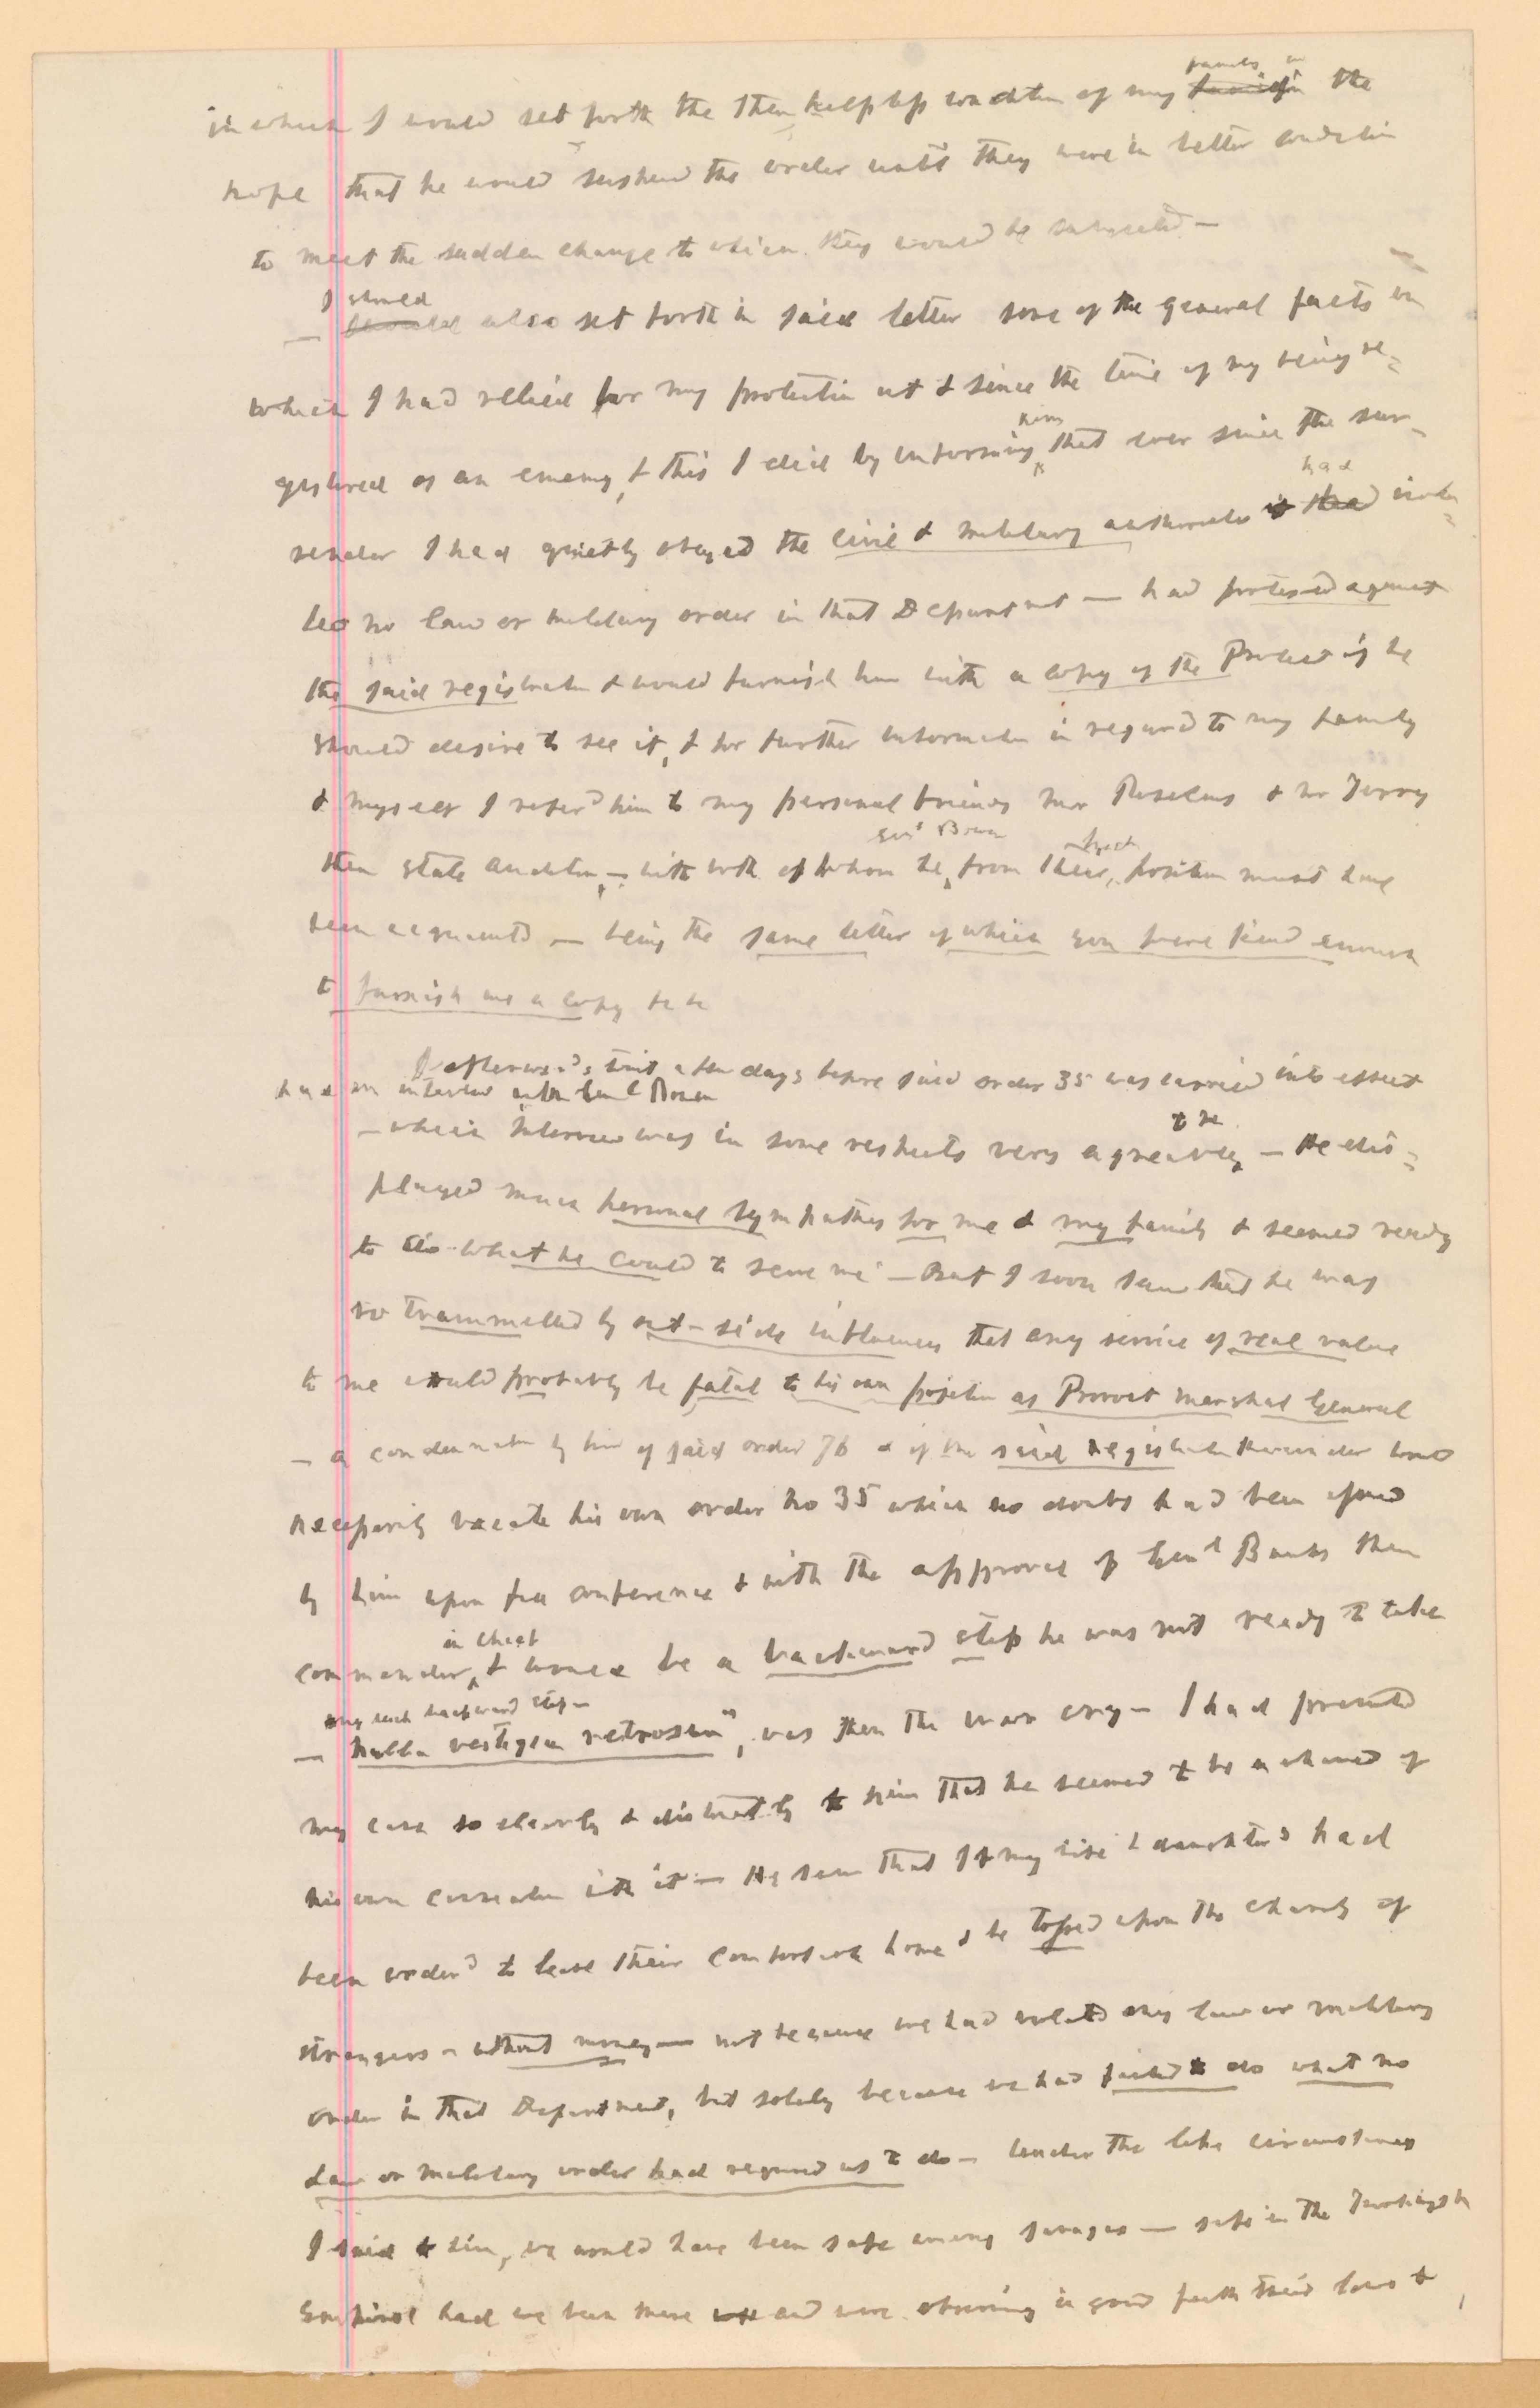 in which I would set forth the then helpless condition of my family in the
hope that he would suspend the order until they were in better condition
to meet the sudden change to which they would be subjected —
— I should also set forth in said letter some of the general facts on
which I had relied for my protection at & since the time of my being re=
gistered as an enemy, & this I did by informing him that ever since the sur-
render I had quietly obeyed the civil & military authorities had viola=
ted no law or military order in that Department — had protested against
the said registration & would furnish him with a copy of the Protest if he
should desire to see it, & for further information in regard to my family
& myself I refer'd him to my personal friends Mr Roselius & Mr
then State Auditor, — with both of whom he, Gen'l Bowen from their position must have
been acquainted — being the same letter of which you were kind enough
to furnish me a copy &c &c
I afterwards but a few days before said order 35 was carried into effect
had an interview with Gen'l Bowen
— which interview was in some respects very agreeable to me — He dis=
played much personal sympathy for me & my family & seemed ready
to do what he could to serve me — But I soon saw that he was
so trammelled by out-side influences that any service of real value
to me would probably be fatal to his own position as Provost Marshal General
— a condemnation by him of said order 76 & of the said registration thereunder would
necessarily vacate his own order No 35 which no doubt had been issued
by him upon full conference & with the approval of Gen'l Banks then
commander in chief, & would be a backward step he was not ready to take
any such backward step —
— nulla vestigia retrorsum", was then the war cry — I had presented
my case so clearly & distinctly to him that he seemed to be ashamed of
his own connection with it — He saw that I & my wife & daughters had
been order'd to leave their comfortable home & be tossed upon the charity of
strangers — without money — not because we had violated any law or military
order in that Department, but solely because we had failed to do what no
law or military order had required us to do — Under the like circumstances
I said to him, we would have been safe among savages — safe in the
had we been there and were observing in good faith their laws &